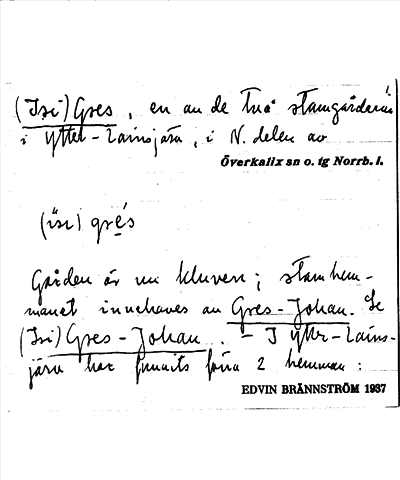 (Isi) Gres, en av de två stamgårdarna
i Ytter-Lainsjärv, i N. delen av
Överkalix sn o. tg Norrb. l.
( isi) gre̱s
Gården är nu kluven; stamhem-
manet innehaves av Gres-Johan. Se
(Isi) Gres-Johan. – I Ytter-Lains-
järv har funnits förra 2 hemman:
EDVIN BRÄNNSTRÖM 1937